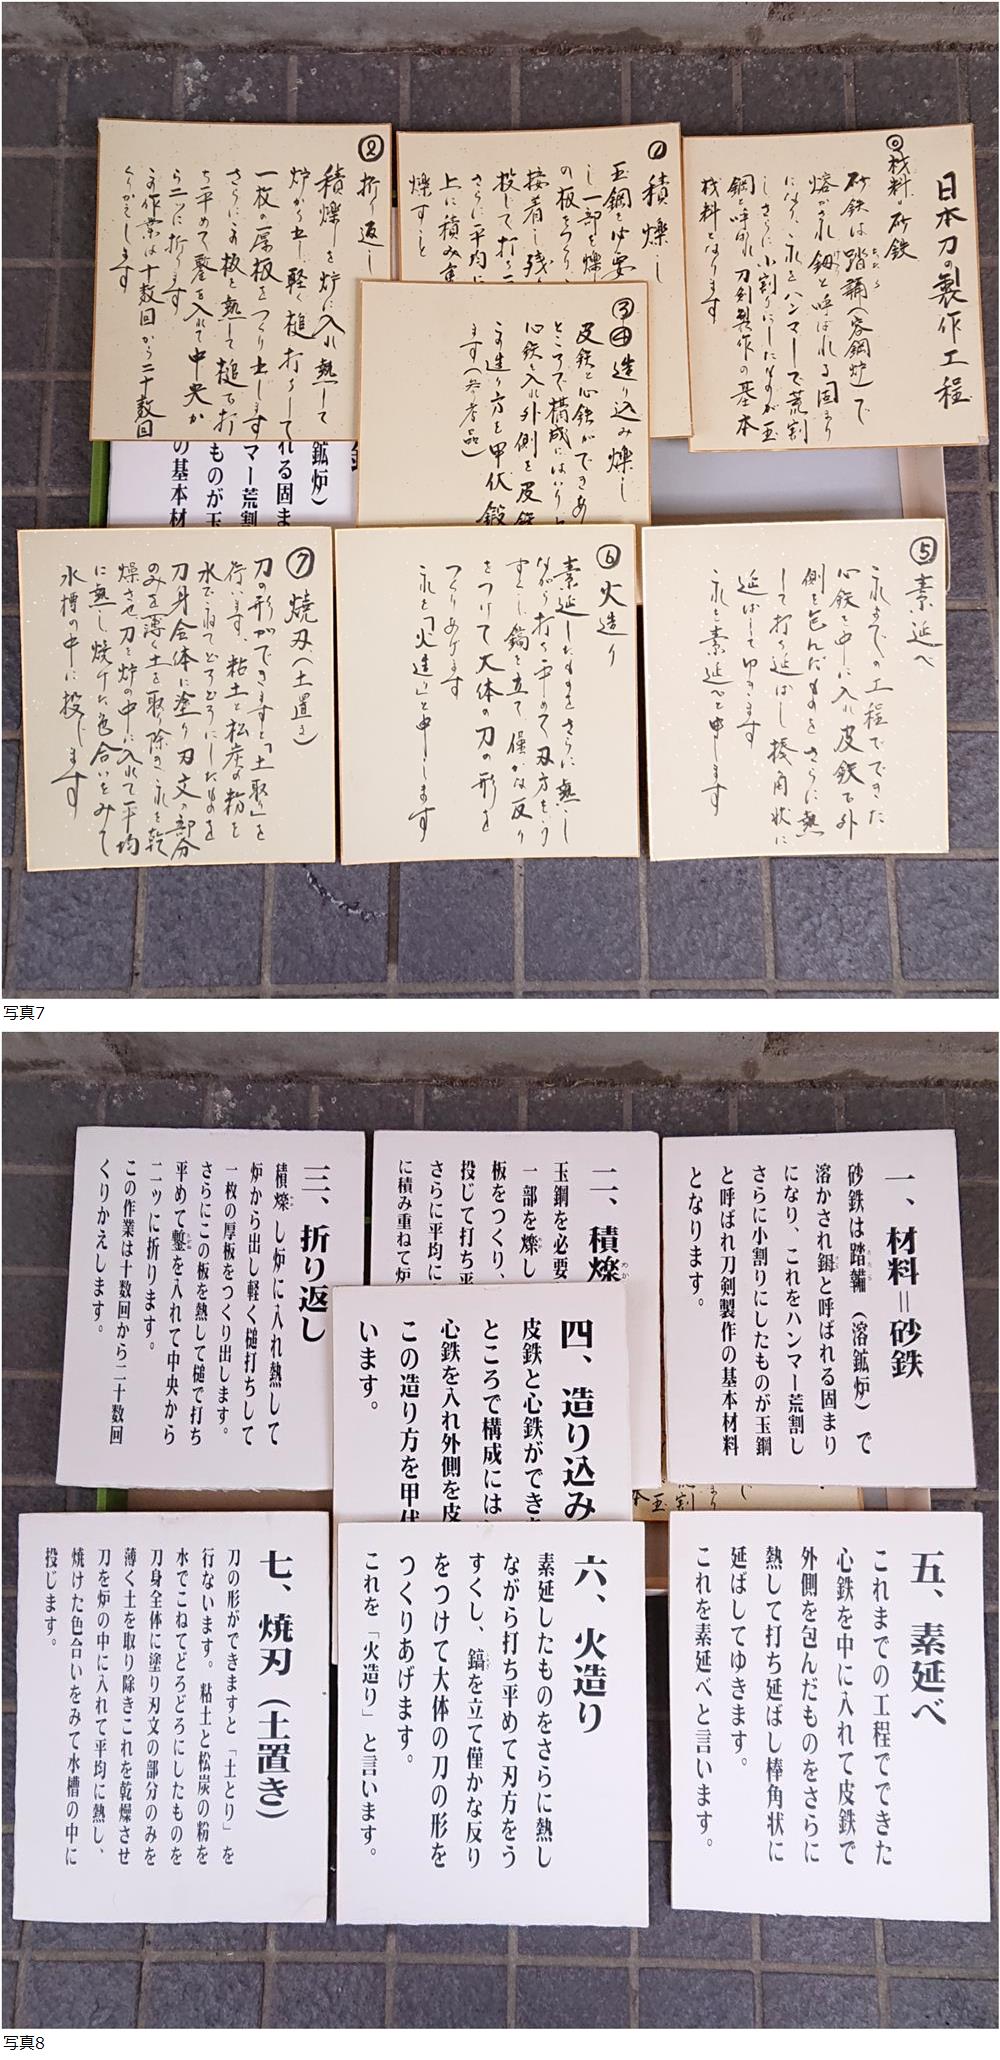 日本刀の製作工程
⓪材料 砂鉄
砂鉄は踏鞴(容鋼炉)で
たたら
熔かされ鉧と呼ばれる固まり
になり、これをハンマーで荒割
しさらに小割りにしたものが玉
鋼と呼ばれ刀剣製作の基本
材料となります
① 積燥し
玉鋼を必要
し一部を燥
の板をつくり
接着し残
投じて打
さらに平均に
上に積み重
燥すこと
② 折り返し
積燥しを炉に入れ熱して
炉から出し軽く槌打ちして
一枚の厚板をつくり出します
さらにこの板を熱して槌で打
ち平めて鏨を入れて中央か
ら二つに折ります
この作業は十数回から二十数回
くりかえします
③④ 造り込み燥し
皮鉄と心鉄ができあ
ところで構成にはいり
心鉄を入れ外側を皮鉄
この造り方を甲伏鍛
ます(参考品)
⑤ 素延べ
これまでの工程でできた
心鉄を中に入れ皮鉄で外
側を包んだものをさらに熱
して打ち延ばし棒角状に
延ばしてゆきます
これを素延べと申します
⑥ 火造り
素延したものをさらに熱し
ながら打ち平めて刃方をう
すくし鎬を立て僅かな反り
をつけて大体の刀の形を
つくりあげます
これを「火造り」と申します
⑦ 焼刃(土置き)
刀の形ができますと「土取り」を
行います、粘土と松炭の粉を
水でねてどろどろにしたものを
刀身全体に塗り刃文の部分
のみを薄く土を取り除きこれを乾
燥させ刀を炉の中に入れて平均
に熱し焼けた色合いをみて
水槽の中に投じます
鉱炉)
れる固ま
マー荒割
ものが玉
の基本材
写真7
一、材料＝砂鉄
砂鉄は踏鞴(溶鉱炉)で
たたら
溶かされ鉧と呼ばれる固まり
になり、これをハンマー荒割し
さらに小割りにしたものが玉鋼
と呼ばれ刀剣製作の基本材料
となります。
二、積燥
玉鋼を必要
一部を燥し
板をつくり、
投じて打ち平
さらに平均に
に積み重ねて炉
三、折り返し
積燥し炉に入れ熱して
炉から出し軽く槌打ちして
一枚の厚板をつくり出します。
さらにこの板を熱して槌で打ち
平めて鏨を入れて中央から
二ッに折ります。
この作業は十数回から二十数回
くりかえします。
四、造り込み
皮鉄と心鉄ができあ
ところで構成には
心鉄を入れ外側を皮
この造り方を甲伏
います。
五、素延べ
これまでの工程でできた
心鉄を中に入れて皮鉄で
外側を包んだものをさらに
熱して打ち延ばし棒角状に
延ばしてゆきます。
これを素延べと言います。
六、火造り
素延したものをさらに熱し
ながら打ち平めて刃方をう
すくし、鎬を立て僅かな反り
をつけて大体の刀の形を
つくりあげます。
これを「火造り」と言います。
七、焼刃(土置き)
刀の形ができますと「土とり」を
行ないます。粘土と松炭の粉を
水でこねてどろどろにしたものを
刀身全体に塗り刃文の部分のみを
薄く土を取り除きこれを乾燥させ
刀を炉の中に入れて平均に熱し、
焼けた色合いをみて水槽の中に
投じます。
写真8